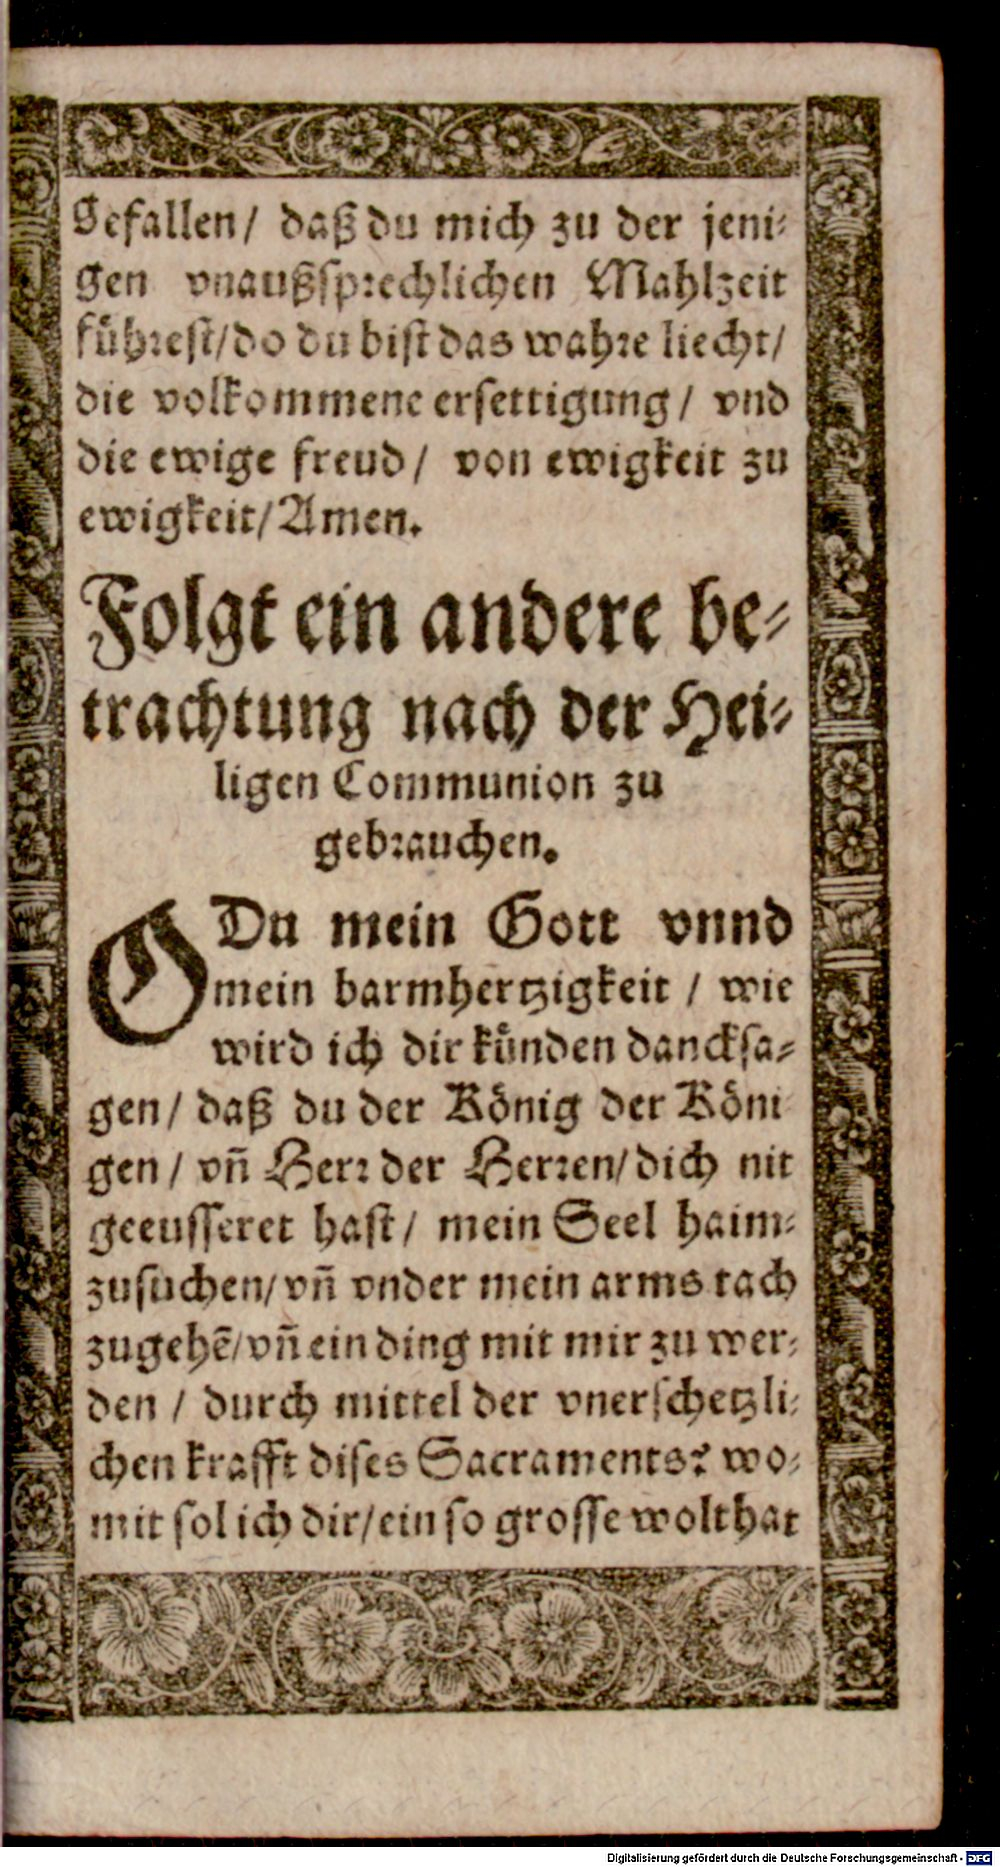 Gefallen/ daß du mich zu der jeni-
gen vnaußsprechlichen Mahlzeit
führest/do du bist das wahre liecht/
die volkommene ersettigung/ vnd
die ewige freud/ von ewigkeit zu
ewigkeit/Amen.
Folgt ein andere be-
trachtung nach der Hei-
ligen Communion zu
gebrauchen.
O Du mein Gott vnnd
mein barmhertzigkeit / wie
wird ich dir künden dancksa-
gen/ daß du der König der Köni
gen/ vñ Herr der Herren/dich nit
geeusseret hast/ mein Seel haim-
zusuchen/vñ vnder mein arms tach
zugehẽ/vñ ein ding mit mir zu wer-
den / durch mittel der vnerschetzli-
chen krafft dises Sacraments? wo-
mit sol ich dir/ein so grosse wolthat
Digitalisierung gefördert durch die Deutsche Forschungsgemeinschaft - DFG